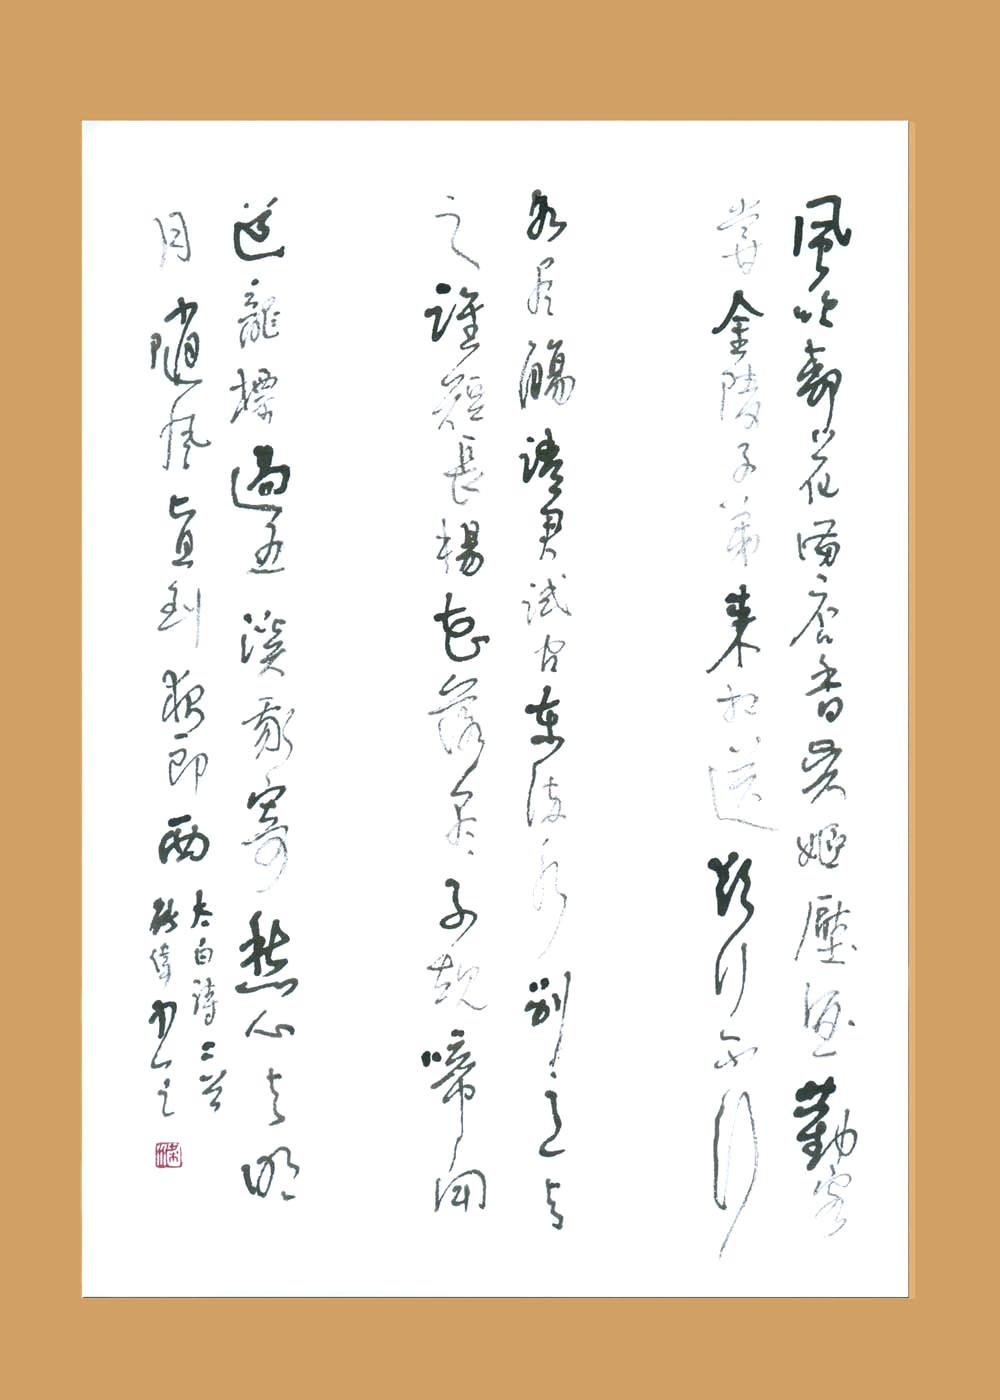 風吹柳花滿店香吳姬壓酒勸客
嘗金陵子弟來相送欲行不行
各尽觴請君試问東流水別意与
之誰短長楊花落尽子規啼聞
道龍標過五溪我寄愁心与明
月隨風直到夜郎西
太白詩二首
張偉书